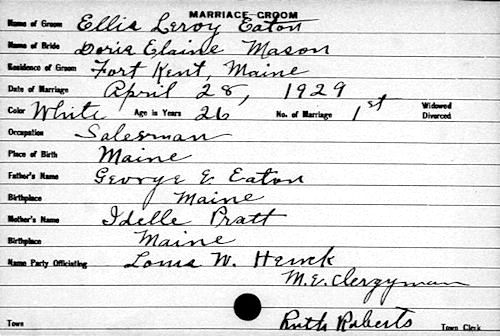 MARRIAGE-GROOM
Name of Groom Ellis Leroy Eaton
Name of Bride Doris Elaine Mason
Residence of Groom Fort Kent, Maine
Date of Marriage April 28, 1929
Color White Age in Years 26 No. of Marriage 1st Widowed Divorced
Occupation Salesman
Place of Birth Maine
Father's Name George E Eaton
Birthplace Maine
Mother's Name Idelle Pratt
Birthplace Maine
Name Party Officiating Louis W. Henck
M.E. Clergyman
Town Ruth Roberts Town Clerk